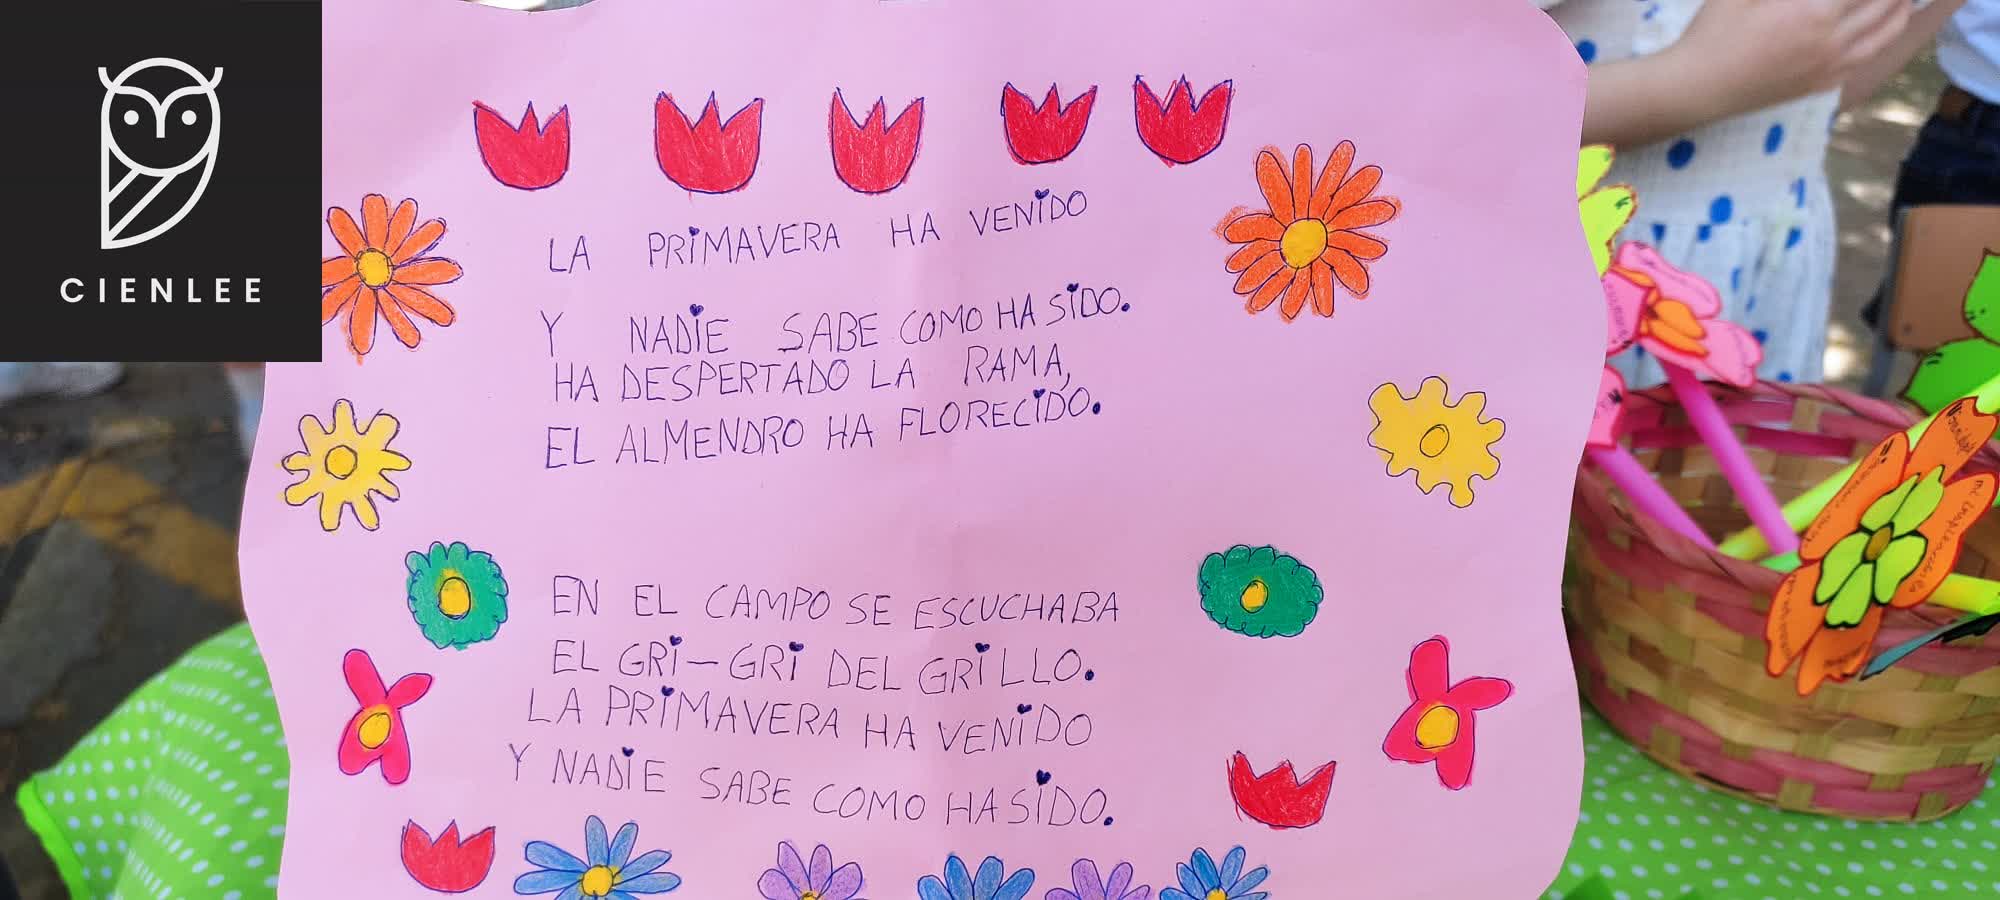 CIENLEE
LA PRIMAVERA HA VENIDO
Y NADIE SABE COMO HA SIDO.
HA DESPERTADO LA RAMA,
EL ALMENDRO HA FLORECIDO.
EN EL CAMPO SE ESCUCHABA
EL GRI-GRI DEL GRILLO.
LA PRIMAVERA HA VENIDO
Y NADIE SABE COMO HA SIDO.